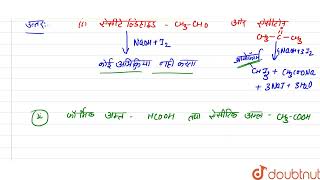 उत्तरः (i) एसीटैल्डिहाइड - CH3-CHO और एसीटोन CH3-C-CH3
O
NaOH+I2
NaOH+3I2
कोई अभिक्रिया नहीं करता
आयोडोफॉर्म
CHI3 + CH3COONa
+ 3NaI + 3H2O
फॉर्मिक अम्ल - HCOOH तथा एसीटिक अम्ल - CH3-COOH
doubtnut